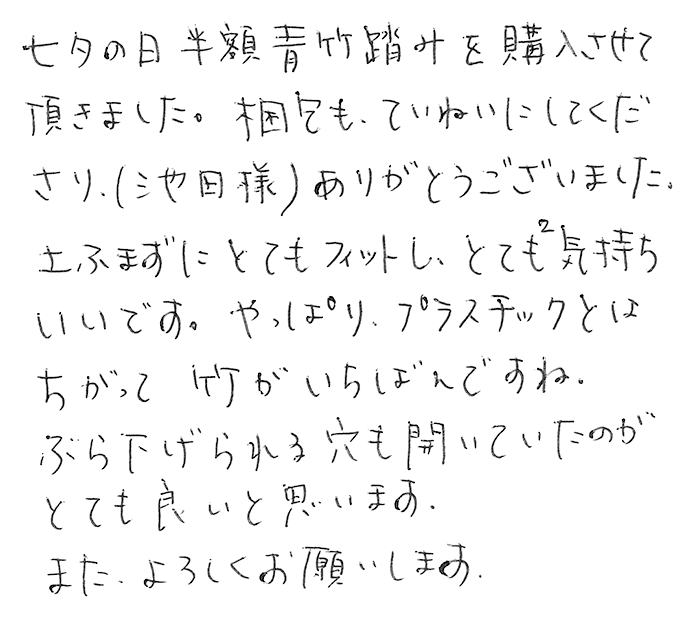 七夕の日半額青竹踏みを購入させて
頂きました。梱包も、ていねいにしてくだ
さり、(池田様)ありがとうございました。
土ふまずにとてもフィットし、とても²気持ち
いいです。やっぱり、プラスチックとは
ちがって 竹がいちばんですね。
ぶら下げられる穴も開いていたのが
とても良いと思います。
また、よろしくお願いします。